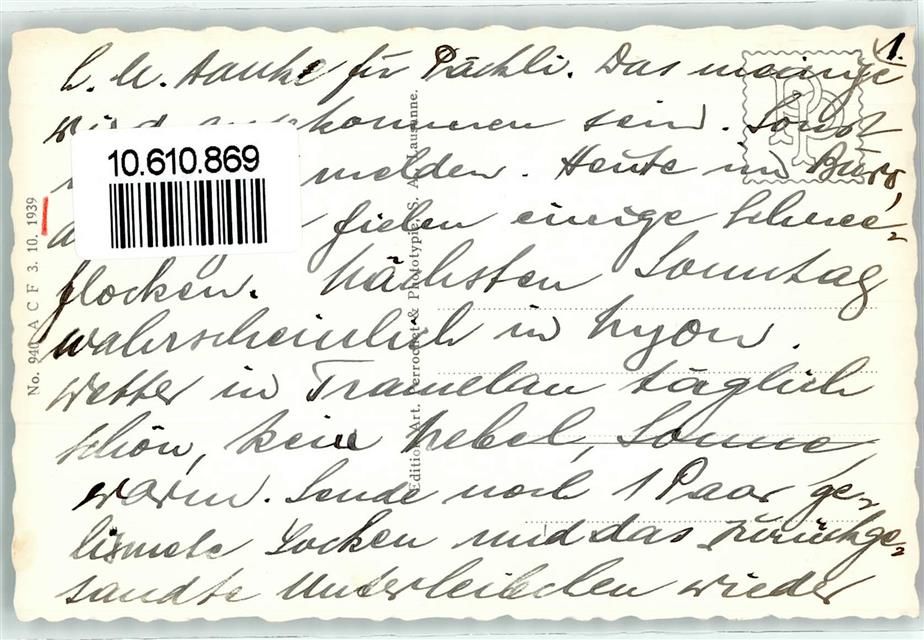 1.
L. M. Danke für Päckli. Das meinige
wird ankommen sein. Sonst
melden. Heute im Büro,
fielen einige Schnee=
flocken. Nächsten Sonntag
wahrscheinlich in Nyon.
Wetter in Tramelan täglich
schön, kein Nebel, Sonne,
warm. Sende noch 1 Paar ge=
lismete Socken und das zurückge=
sandte Unterleibchen wieder
10.610.869
No. 940 A C F 3. 10. 1939
Edition Art. Perrochet & Phototypie S. A. Lausanne.